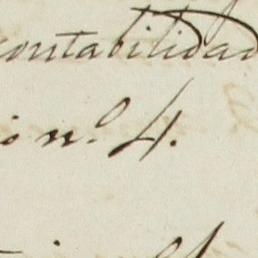 contabilidad
io nº 4.